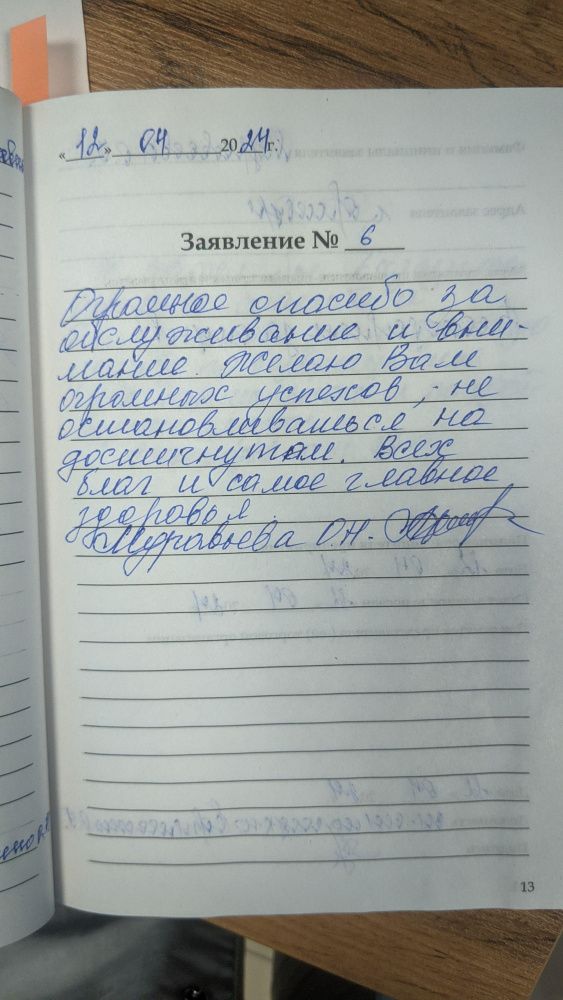 « 12 » 04 20 24 г.
Заявление № 6
Огромное спасибо за
обслуживание и вни-
мание. Желаю Вам
огромных успехов, не
останавливаться на
достигнутом. Всех
благ и самое главное
здоровья
Муравьева О.Н.
13